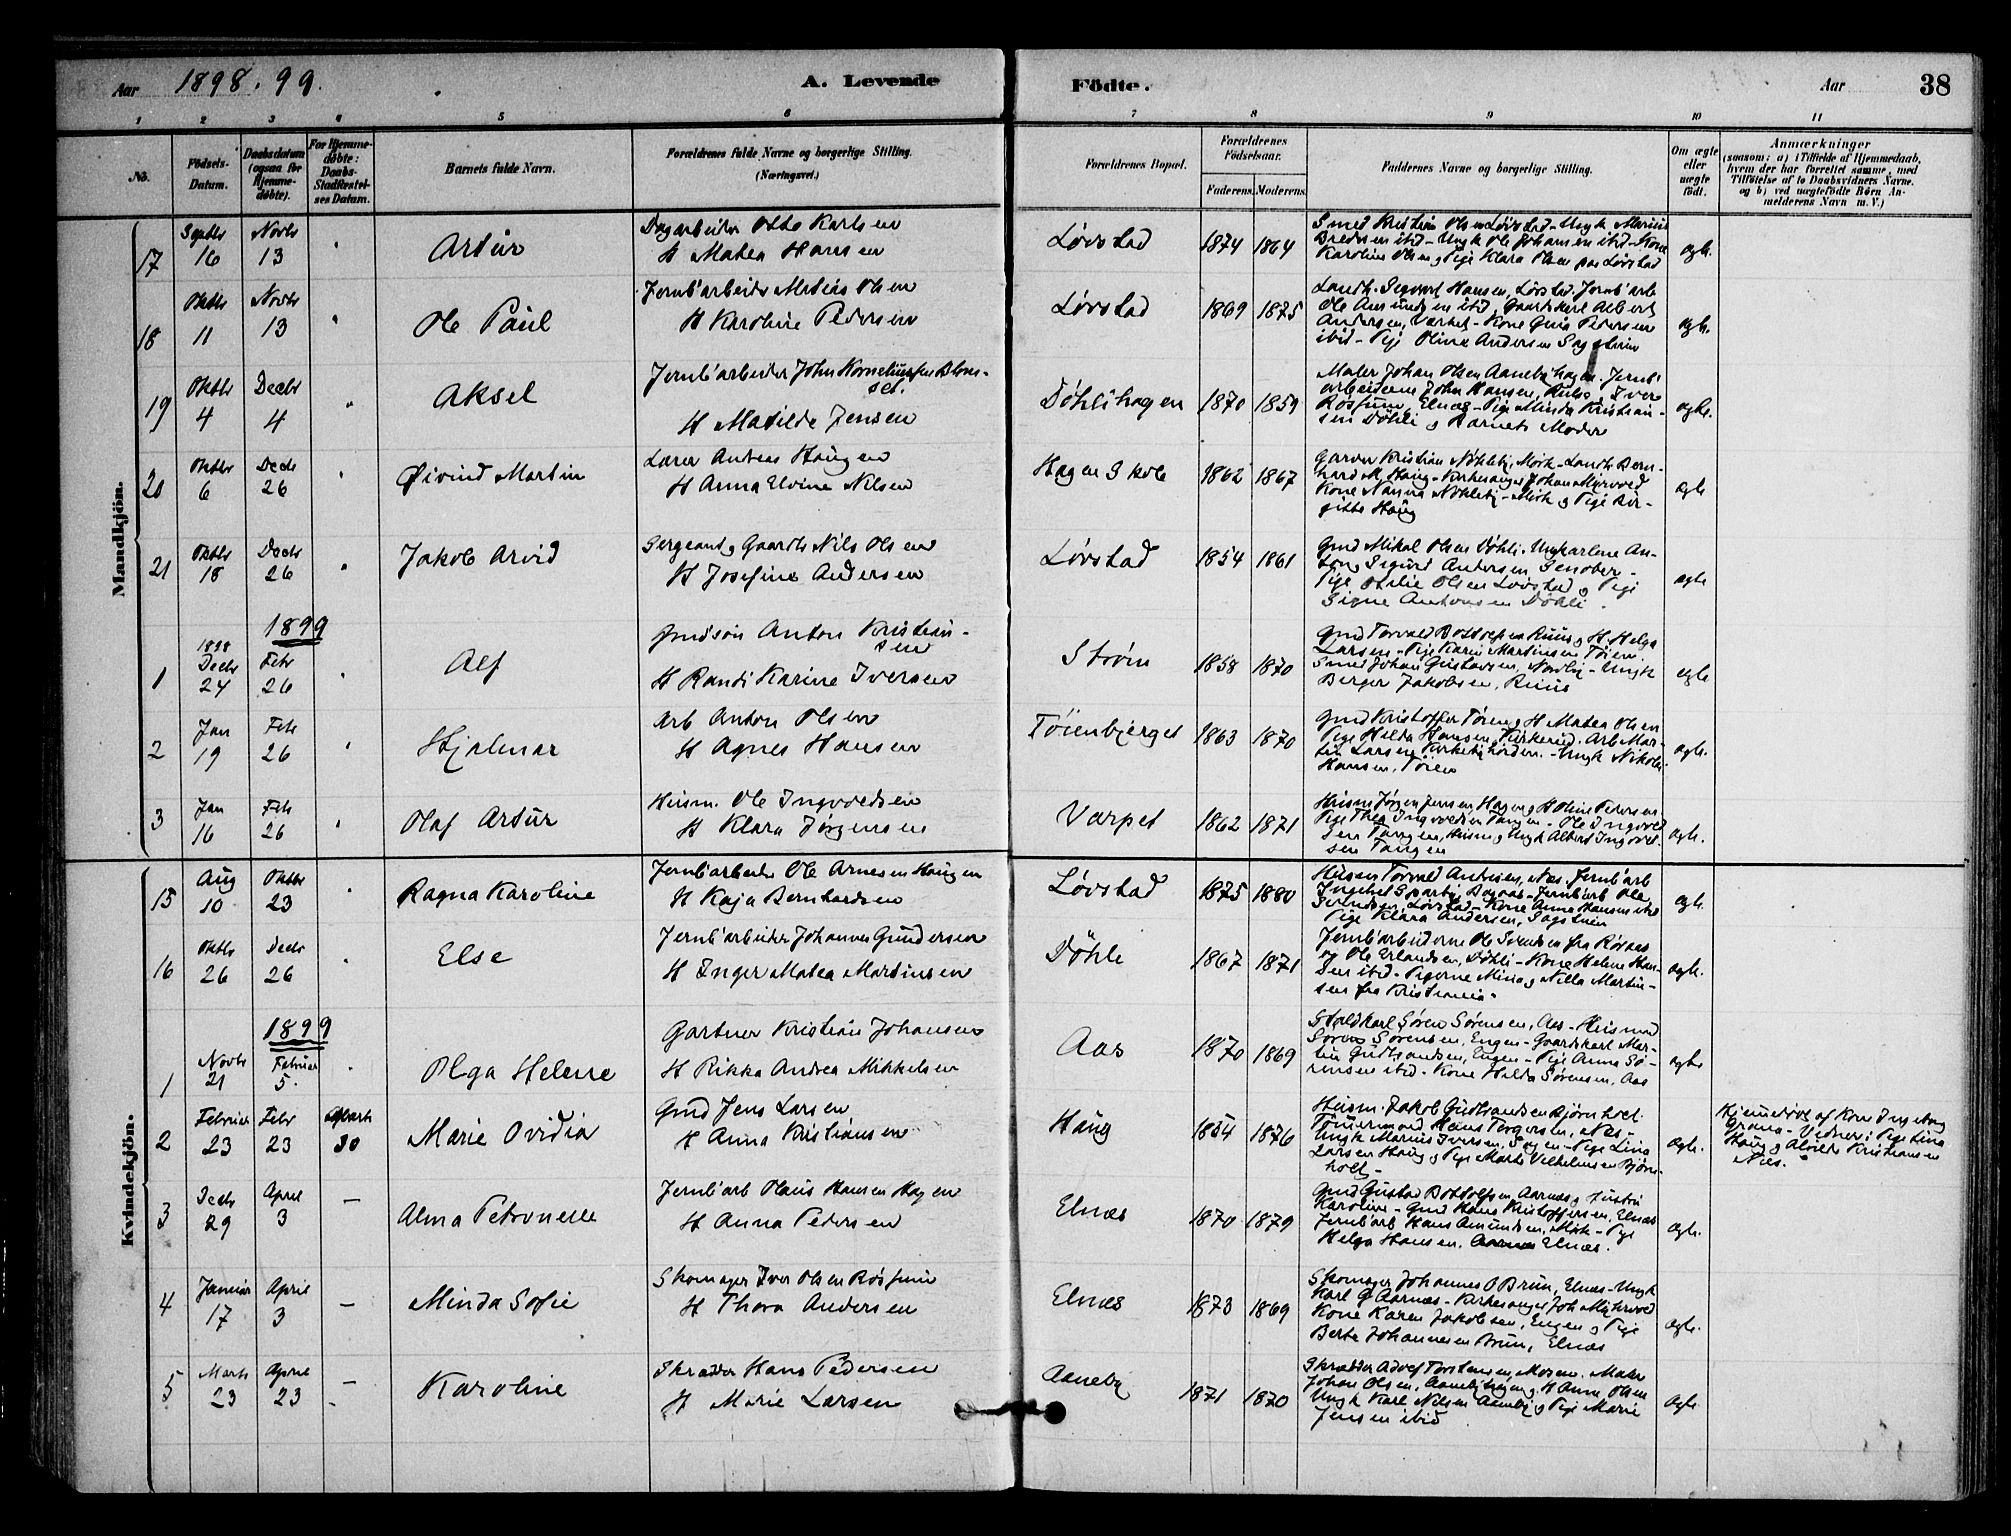 Aar 1898. 99. A. Levende Födte. Aar 38
1 2 3 4 5 6 7 8 9 10 11
No. Födsels-Datum. Daabsdatum (ogsaa for Hjemme-døbte). For Hjemme-døbte: Daabs-Stadfæstel-ses Datum. Barnets fulde Navn. Forældrenes fulde Navne og borgerlige Stilling. (Næringsvei.) Forældrenes Bopæl. Forældrenes Fødselsaar. Faderens. Moderens. Faddernes Navne og borgerlige Stilling. Om ægte eller uægte født. Anmærkninger
(saasom: a) i Tilfælde af Hjemmedaab, hvem der har forrettet samme, med Tilføielse af to Daabsvidners Navne, og b) ved uægtefödte Börn An-melderens Navn m. V.)
Mandkjön.
17 Septbr 16 Novbr 13 Artur
Dagarbeider Otto Karlsen
H Matea Hansen
Løvstad 1874 1864
Smed Kristian Olsen Løvstad - Ungk Marius
Bredesen ibid - Ungk Ole Johansen ibid - Kone
Karoline Olsen og Pige Klara Olsen paa Løvstad
ægte.
18 Oktbr 11 Novbr 13 Ole Paul
Jernb'arbeider Matias Olsen
H Karoline Pedersen
Løvstad 1869 1875
Landh. Sigvart Hansen, Løvstad. Jernb'arb
Ole Aamundsen ibid, Gaardskarl Albert
Andersen, Værket - Kone Pedersen
ibid - Pige Oline Andersen
ægte.
19 Oktbr 4 Decbr 4 Aksel
Jernb'arbeider John Korneliussen
H Matilde Jensen
Döhlihagen 1870 1859
Maler Johan Olsen Aanebyhagen. Jernb'
arbeiderne John Hansen, Iver
Elnæs - Pige Minda Kristian-
sen Döhli og Barnets Moder
ægte.
20 Oktbr 6 Decbr 26 Øivind Martin
Lærer Anders Haugen
H Anna Elvine Nilsen
Hagen Skole 1862 1867
Garver Kristian Nökleby, Mörk - Landh. Bern-
hard M. Haug - Kirkesanger Johan Myrvold
Kone Nanna Nökleby - Mörk og Pige Bir-
gitte Haug
ægte
21 Oktbr 18 Decbr 26 Jakob Arvid
Sergeant og Gaardb Nils Olsen
H Josefine Andersen
Løvstad 1854 1861
Gmd Mikal Olsen Döhli. Ungkarlene An-
ton og Sigurd Andersen Senober -
Pige Otilie Olsen Løvstad og Pige
Signe Antonsen Döhli.
ægte
1899
1 1898 Decbr 24 Febr 26 Alf
Gmdsön Anton Kristian-
sen
H Randi Karine Iversen
Ström 1858 1870
Gmd Torvald Bottolfsen Ruus og H. Helga
Larsen - Pige Karin Martinsen Töien
Smed Johan Gustavsen, Nordby - Ungk
Berger Jakobsen, Ruus
ægte
2 Jan 19 Feb 26 Hjalmar
Arb Anton Olsen
H Agnes Hansen
Töienbjerget 1863 1870
Gmd Kristoffer Töien og H Matea Olsen
Pige Hilda Hansen, Kirkerud. Arb Mar-
tin Larsen - Ungk Nikolai
Hansen, Töien
ægte.
3 Jan 16 Feb 26 Olaf Artur
Husm. Ole Ingvoldsen
H Klara Jørgensen
Værpet 1862 1871
Husm Jørgen Jensen Hagen og H Oline Pedersen
Pige Thea Ingvoldsen Tangen - Ole Ingvold
sen Tangen, Husm og Ungk Albert Ingvold-
sen Tangen
ægte.
Kvindekjön.
15 Aug 10 Oktbr 23 Ragna Karoline
Jernb'arbeider Ole Arnesen Haugen
H Kaja Bernhardsen
Løvstad 1875 1880
Husm Torvald Andersen, Næs. Jernb'arb
Jernb'arb Ole
Løvstad - Kone Anne Hansen ibid
Pige Klara Andersen,
ægte.
16 Oktbr 26 Decbr 26 Else
Jernb'arbeider Johannes Gundersen
H Inger Matea Martinsen
Döhli 1867 1871
Jernb'arbeiderne Ole Svendsen fra
og Ole Erlandsen, Döhli - Kone Helene Han-
sen ibid - Pigerne Mina og Nilla Martin-
sen fra Kristiania.
ægte.
1899
1 Novbr 21 Februar 5. Olga Helene
Gartner Kristian Johansen
H Rikka Andrea Mikkelsen
Aas 1870 1869
Staldkarl Søren Sørensen, Aas - Husmand
Sørensen, Engen - Gaardskarl Mar-
tin Gudbrandsen, Engen - Pige Anna Sø-
rensen ibid - Kone Hilda Sørensen, Aas
ægte
2 Februar 23 Febr 23 Marts 30 Marie Ovidia
Gmd Jens Larsen
H Anna Kristiansen
Haug 1854 1876
Husm. Jakob Gudbrandsen Bjørnholt.
Tömmermand Hans Torgersen, Næs -
Ungk Marius Iversen, - Pige Lina
Larsen Haug og Pige Marte Vilhelmsen Bjørn-
holt -
ægte.
Hjemmedöbt af Kone Ingeborg
Vidner: Pige Lina
Haug og Kristiansen
Næs.
3 Decbr 29 April 3 — Alma Petronelle
Jernb'arb Olaus Hansen Hagen
H Anna Pedersen
Elnæs 1870 1879
Gmd Gustav Bottolfsen Aarnæs og Hustru
Karoline - Gmd Hans Kristoffersen, Elnæs
Jernb'arb Hans Amundsen, Mörk - Pige
Helga Hansen, Elnæs.
ægte.
4 Januar 17 April 3 — Minda Sofie
Skomager Iver Olsen
H Thora Andersen
Elnæs 1873 1869
Skomager Johannes O Brun, Elnæs - Ungk
Karl Aarnæs - Kirkesanger Joh Myhrvold
Kone Karen Jakobsen, Engen og Pige
Berte Johannesen Brun, Elnæs
ægte.
5 Marts 23 April 23 — Karoline
Skrædder Hans Pedersen
H Marie Larsen
Aaneby 1871 1870
Skrædder Adolf Torstensen, Mosen. Maler
Johan Olsen, Aanebyhagen og H Anne Olsen
Ungk Karl Nilsen Aaneby og Pige Marie
Jensen ibid
ægte.